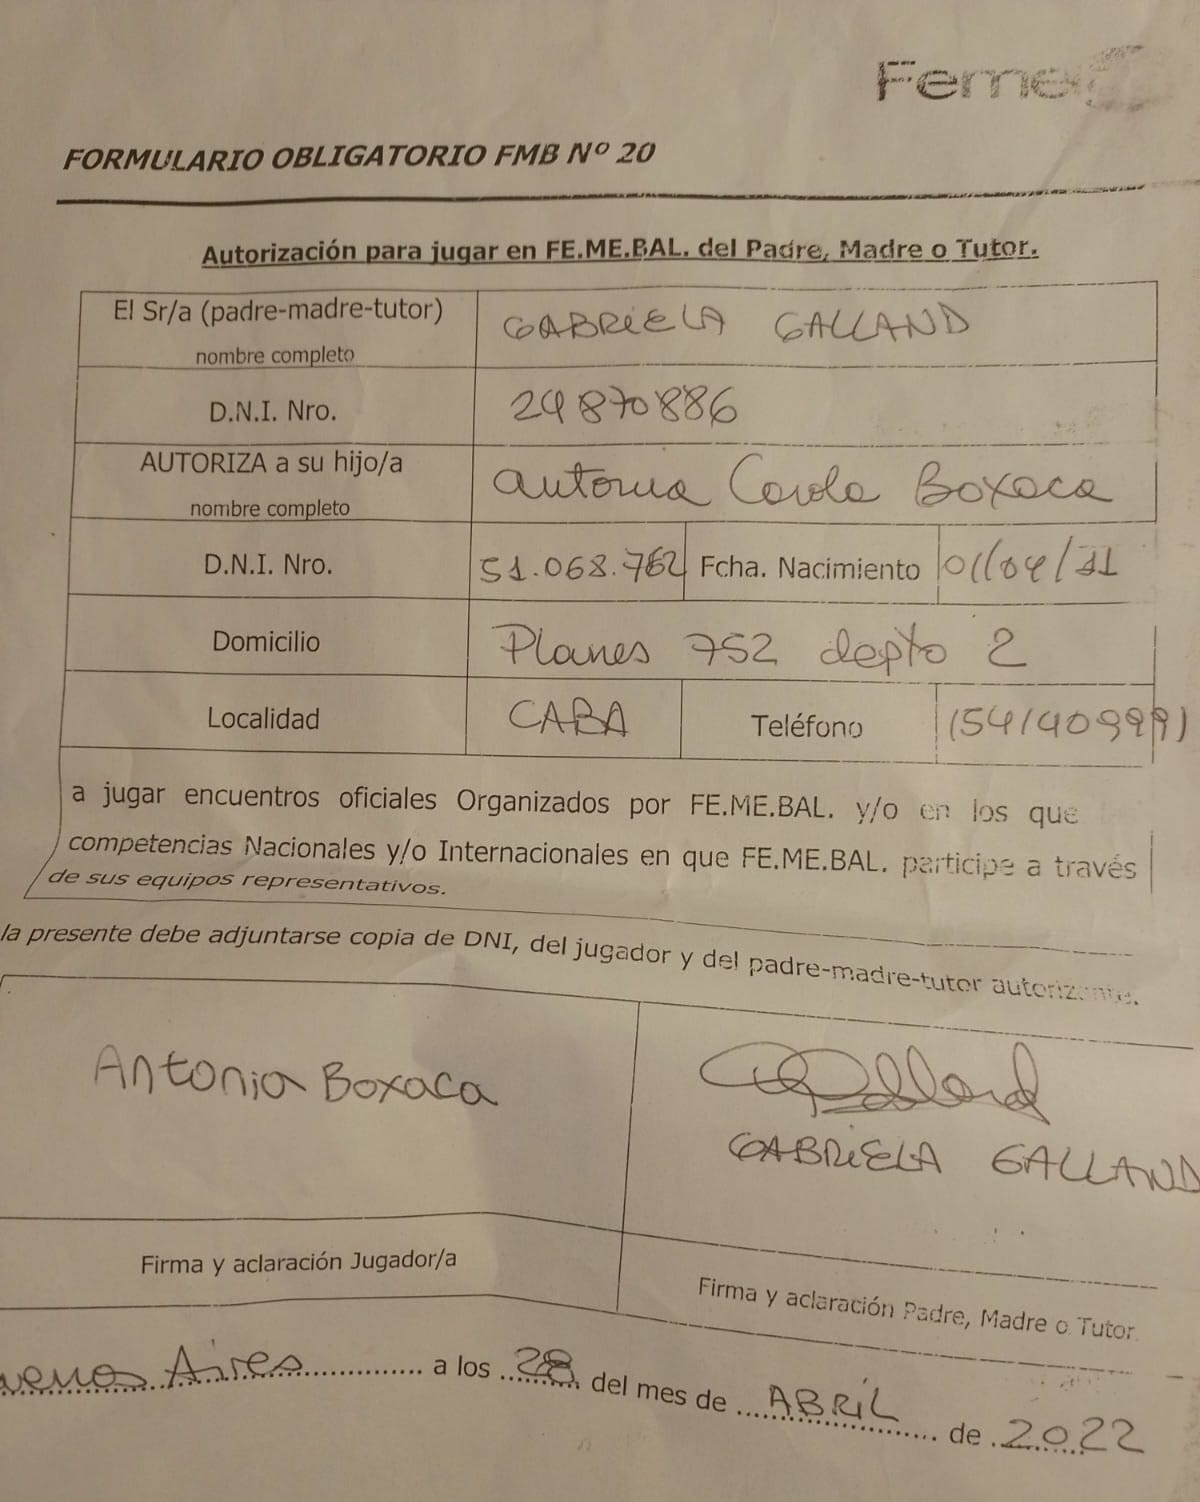 FORMULARIO OBLIGATORIO FMB Nº 20
Autorización para jugar en FE.ME.BAL. del Padre, Madre o Tutor.
El Sr/a (padre-madre-tutor) GABRIELA GALLAND
nombre completo
D.N.I. Nro. 24870886
AUTORIZA a su hijo/a Antonia Carola Boxaca
nombre completo
D.N.I. Nro. 51.068.762 Fcha. Nacimiento 01/04/11
Domicilio Planes 752 depto 2
Localidad CABA Teléfono 1541409991
a jugar encuentros oficiales Organizados por FE.ME.BAL. y/o en los que
competencias Nacionales y/o Internacionales en que FE.ME.BAL. participe a través
de sus equipos representativos.
la presente debe adjuntarse copia de DNI, del jugador y del padre-madre-tutor autorizante.
Antonia Boxaca
GABRIELA GALLAND
Firma y aclaración Jugador/a
Firma y aclaración Padre, Madre o Tutor
Aires a los 28 del mes de ABRIL de 2022